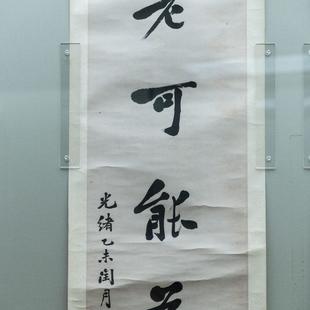 老可能
光緒乙未閏月